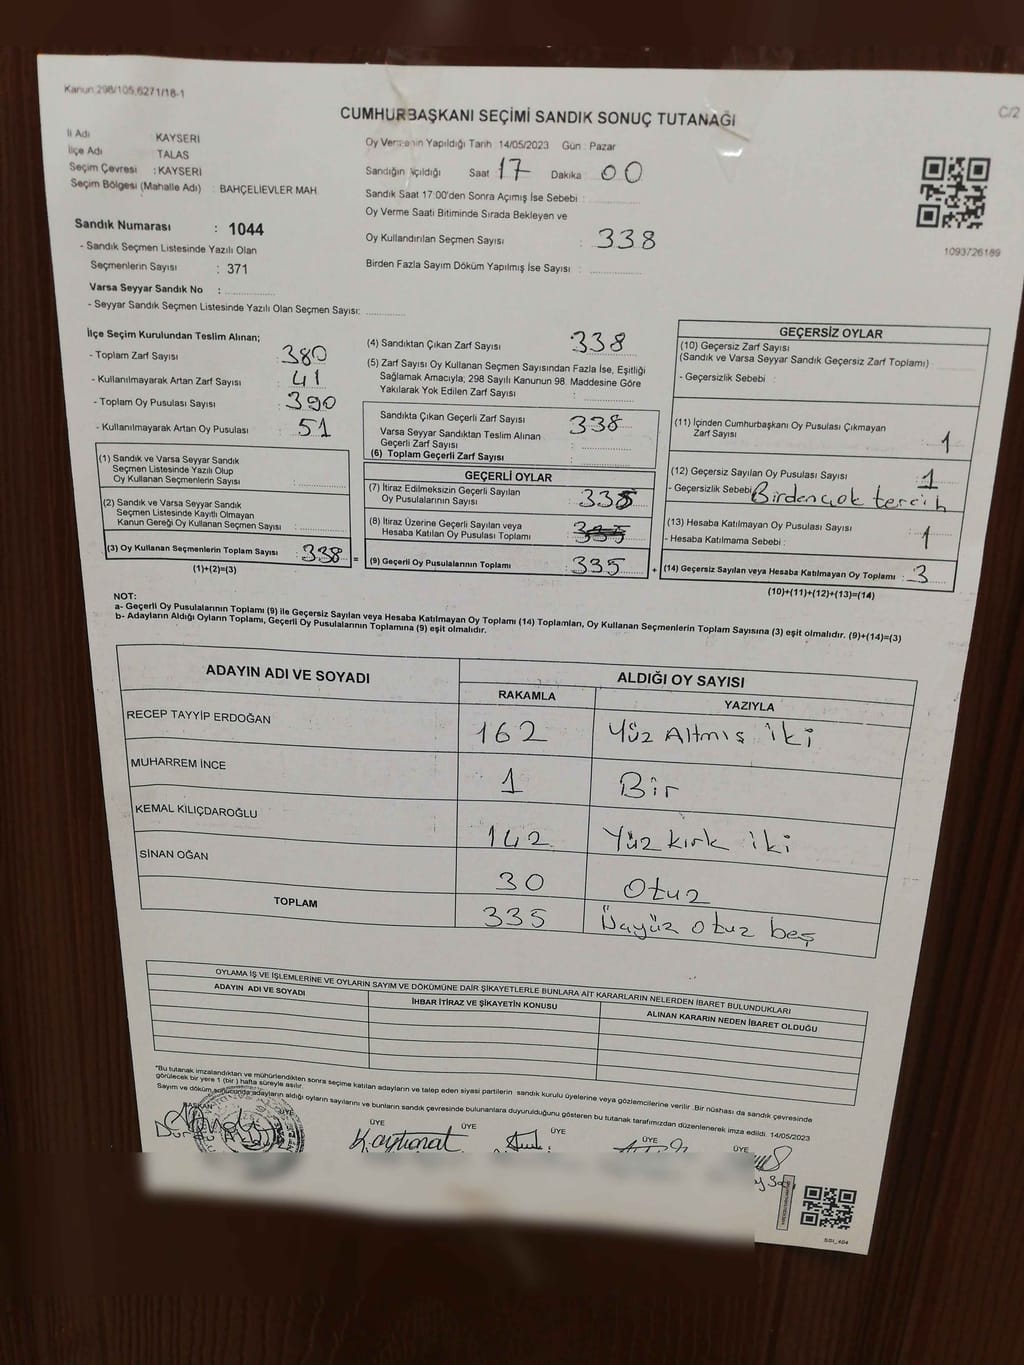 Kanun 298/105,6271/18-1
C/2
CUMHURBAŞKANI SEÇİMİ SANDIK SONUÇ TUTANAĞI
İl Adı KAYSERİ
İlçe Adı TALAS
Seçim Çevresi : KAYSERİ
Seçim Bölgesi (Mahalle Adı) : BAHÇELİEVLER MAH.
Sandık Numarası : 1044
- Sandık Seçmen Listesinde Yazılı Olan
Seçmenlerin Sayısı : 371
Varsa Seyyar Sandık No :
- Seyyar Sandık Seçmen Listesinde Yazılı Olan Seçmen Sayısı:
Oy Vermenin Yapıldığı Tarih 14/05/2023 Gün : Pazar
Sandığın Açıldığı Saat 17 Dakika 00
Sandık Saat 17:00'den Sonra Açımış İse Sebebi :
Oy Verme Saati Bitiminde Sırada Bekleyen ve
Oy Kullandırılan Seçmen Sayısı : 338
Birden Fazla Sayım Döküm Yapılmış İse Sayısı :
1093726189
İlçe Seçim Kurulundan Teslim Alınan;
- Toplam Zarf Sayısı : 380
- Kullanılmayarak Artan Zarf Sayısı : 41
- Toplam Oy Pusulası Sayısı : 390
- Kullanılmayarak Artan Oy Pusulası : 51
(1) Sandık ve Varsa Seyyar Sandık
Seçmen Listesinde Yazılı Olup
Oy Kullanan Seçmenlerin Sayısı :
(2) Sandık ve Varsa Seyyar Sandık
Seçmen Listesinde Kayıtlı Olmayan
Kanun Gereği Oy Kullanan Seçmen Sayısı :
(3) Oy Kullanan Seçmenlerin Toplam Sayısı : 338 =
(1)+(2)=(3)
(4) Sandıktan Çıkan Zarf Sayısı : 338
(5) Zarf Sayısı Oy Kullanan Seçmen Sayısından Fazla İse, Eşitliği
Sağlamak Amacıyla; 298 Sayılı Kanunun 98. Maddesine Göre
Yakılarak Yok Edilen Zarf Sayısı :
Sandıkta Çıkan Geçerli Zarf Sayısı : 338
Varsa Seyyar Sandıktan Teslim Alınan
Geçerli Zarf Sayısı :
(6) Toplam Geçerli Zarf Sayısı :
GEÇERLİ OYLAR
(7) İtiraz Edilmeksizin Geçerli Sayılan
Oy Pusulalarının Sayısı : 335
(8) İtiraz Üzerine Geçerli Sayılan veya
Hesaba Katılan Oy Pusulası Toplamı : 335
(9) Geçerli Oy Pusulalarının Toplamı : 335 +
GEÇERSİZ OYLAR
(10) Geçersiz Zarf Sayısı
(Sandık ve Varsa Seyyar Sandık Geçersiz Zarf Toplamı) :
- Geçersizlik Sebebi :
(11) İçinden Cumhurbaşkanı Oy Pusulası Çıkmayan
Zarf Sayısı : 1
(12) Geçersiz Sayılan Oy Pusulası Sayısı : 1
- Geçersizlik Sebebi : Birden çok tercih
(13) Hesaba Katılmayan Oy Pusulası Sayısı : 1
- Hesaba Katılmama Sebebi :
(14) Geçersiz Sayılan veya Hesaba Katılmayan Oy Toplamı : 3
(10)+(11)+(12)+(13)=(14)
NOT:
a- Geçerli Oy Pusulalarının Toplamı (9) ile Geçersiz Sayılan veya Hesaba Katılmayan Oy Toplamı (14) Toplamları, Oy Kullanan Seçmenlerin Toplam Sayısına (3) eşit olmalıdır. (9)+(14)=(3)
b- Adayların Aldığı Oyların Toplamı, Geçerli Oy Pusulalarının Toplamına (9) eşit olmalıdır.
ADAYIN ADI VE SOYADI ALDIĞI OY SAYISI
RAKAMLA YAZIYLA
RECEP TAYYİP ERDOĞAN 162 Yüz Altmış iki
MUHARREM İNCE 1 Bir
KEMAL KILIÇDAROĞLU 142 Yüz kırk iki
SİNAN OĞAN 30 Otuz
TOPLAM 335 Üçyüz otuz beş
OYLAMA İŞ VE İŞLEMLERİNE VE OYLARIN SAYIM VE DÖKÜMÜNE DAİR ŞİKAYETLERLE BUNLARA AİT KARARLARIN NELERDEN İBARET BULUNDUKLARI
ADAYIN ADI VE SOYADI İHBAR İTİRAZ VE ŞİKAYETİN KONUSU ALINAN KARARIN NEDEN İBARET OLDUĞU
"Bu tutanak imzalandıktan ve mühürlendikten sonra seçime katılan adayların ve talep eden siyasi partilerin sandık kurulu üyelerine veya gözlemcilerine verilir. Bir nüshası da sandık çevresinde
görülecek bir yere 1 (bir) hafta süreyle asılır.
Sayım ve döküm sonucunda adayların aldığı oyların sayılarını ve bunların sandık çevresinde bulunanlara duyurulduğunu gösteren bu tutanak tarafımızdan düzenlenerek imza edildi. 14/05/2023
BAŞKAN ÜYE ÜYE ÜYE ÜYE ÜYE ÜYE